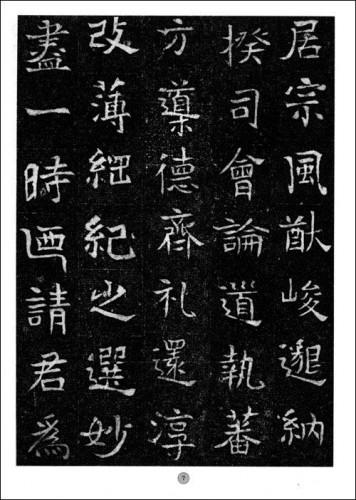 居宗風猷峻邈納
揆司會論道執蕃
方導德齊礼還淳
改薄綱紀之選妙
盡一時迺請君爲
7